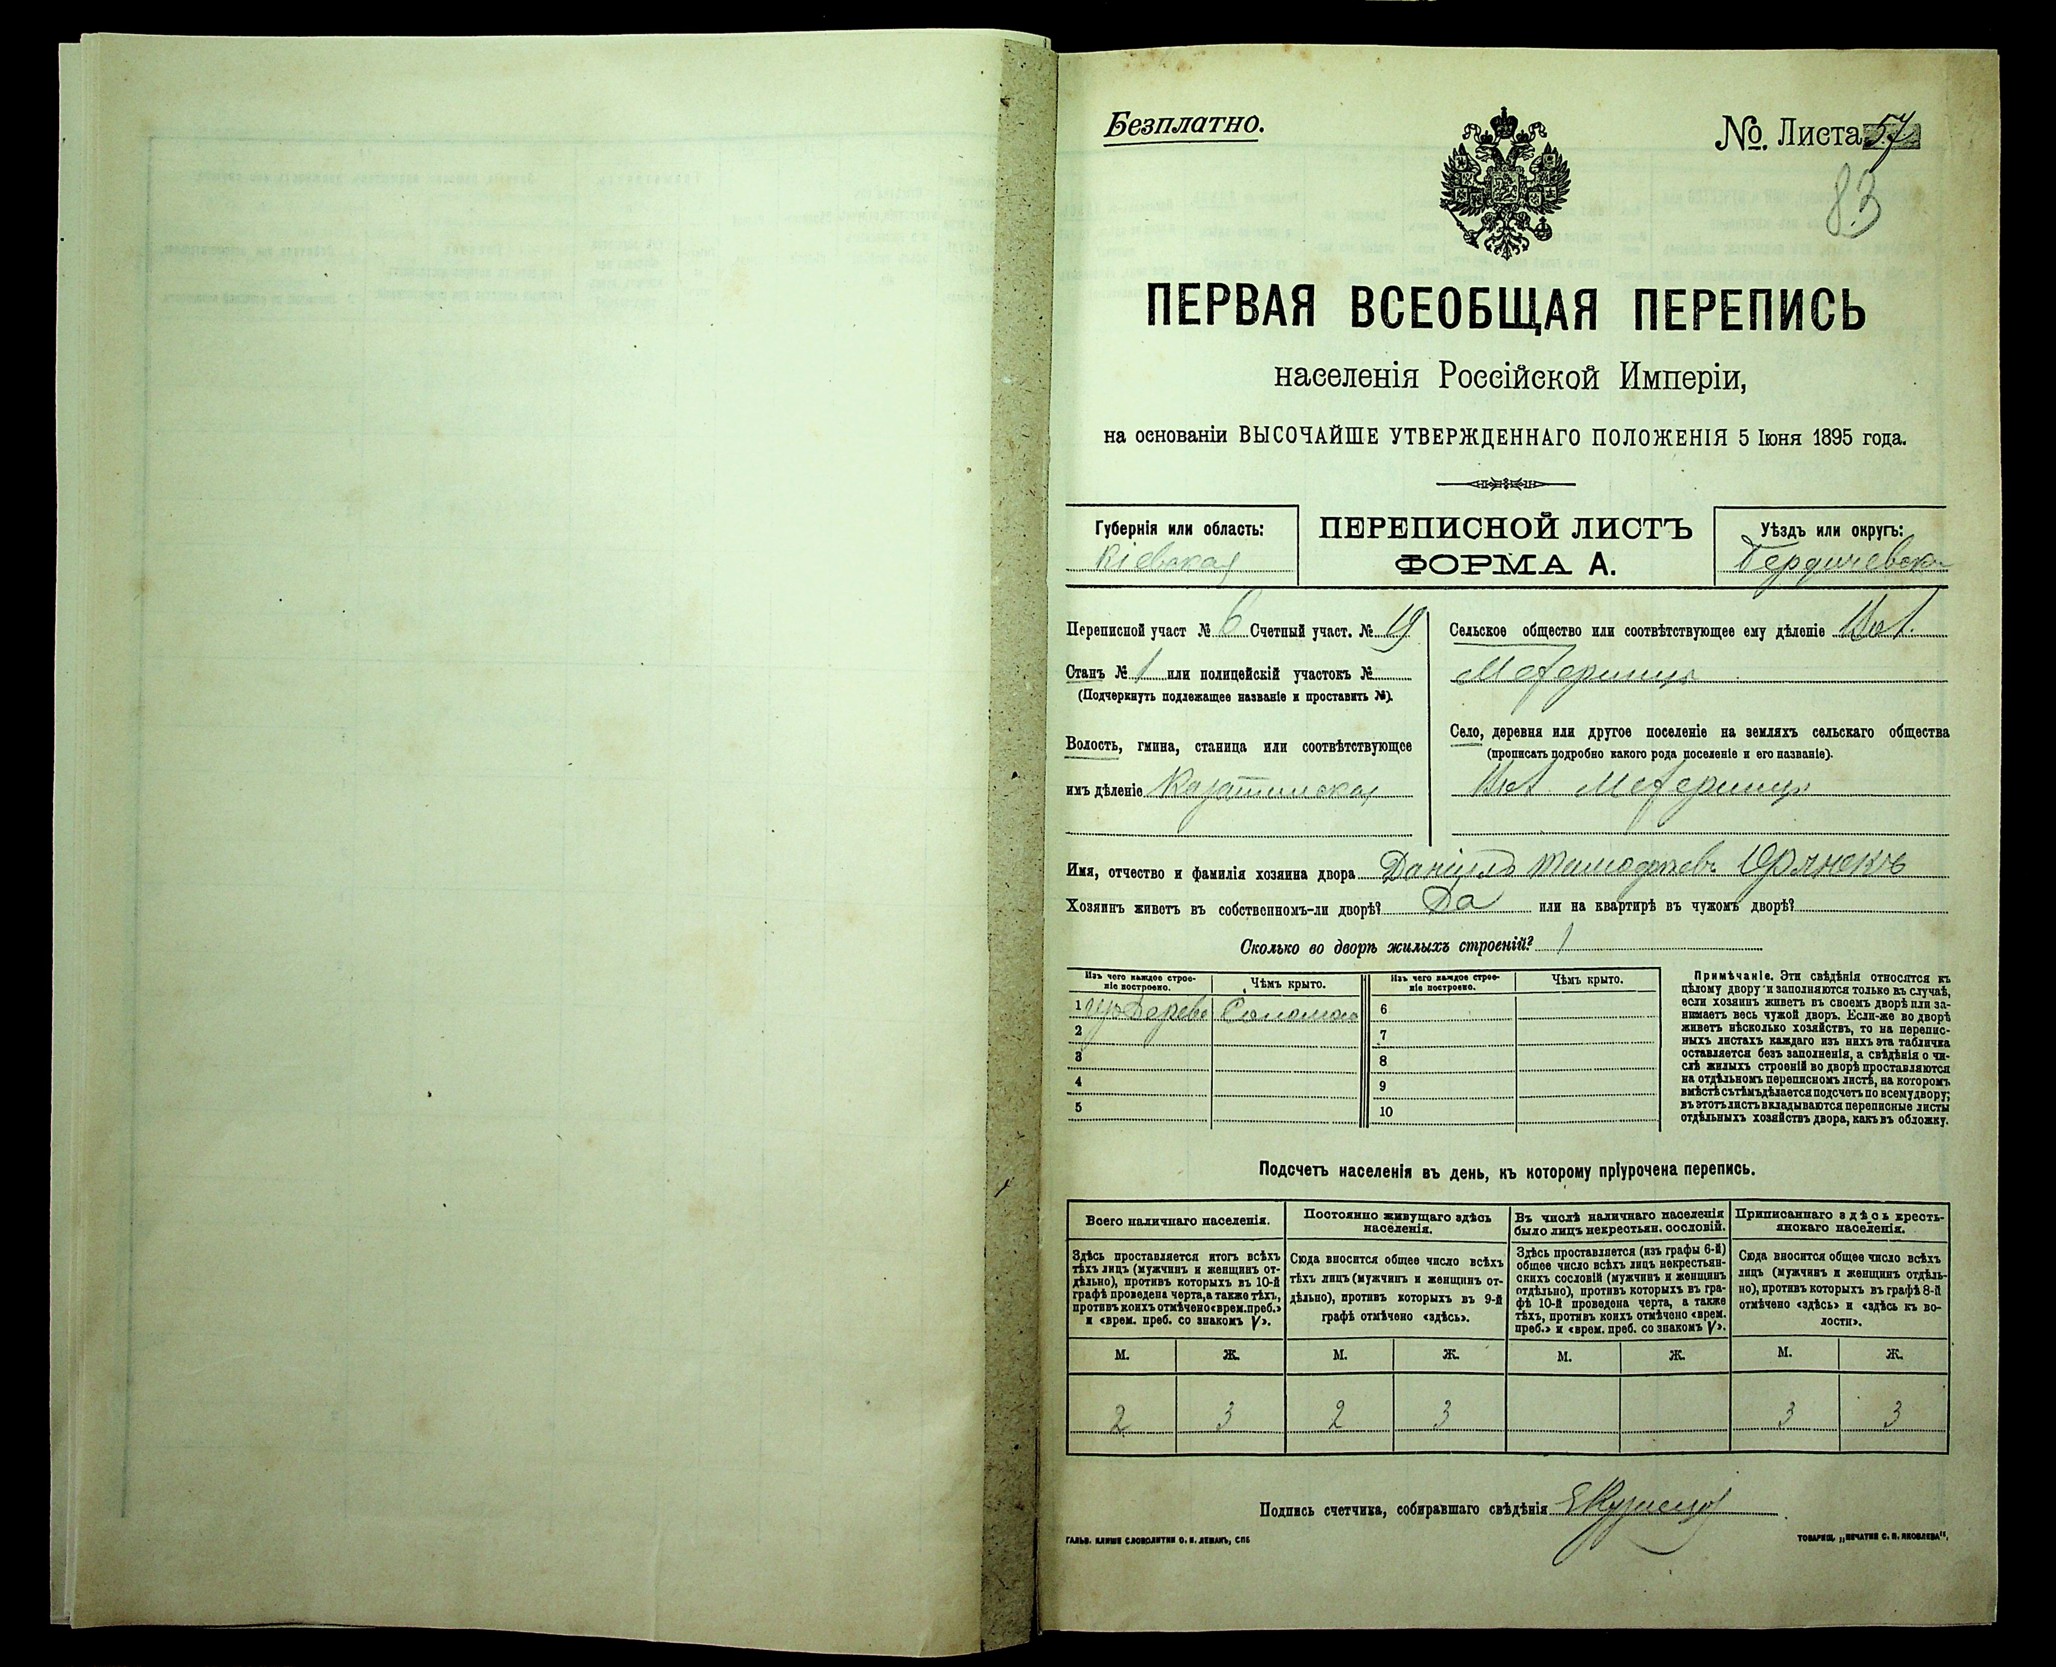 Безплатно.
№. Листа 57
83
ПЕРВАЯ ВСЕОБЩАЯ ПЕРЕПИСЬ
населенія Россійской Имперіи,
на основаніи ВЫСОЧАЙШЕ УТВЕРЖДЕННАГО ПОЛОЖЕНІЯ 5 Іюня 1895 года.
Губернія или область:
Кіевская
ПЕРЕПИСНОЙ ЛИСТЪ
ФОРМА А.
Уѣздъ или округъ:
Бердичевскій
Переписной участ № 6 Счетный участ. № 19
Станъ № 1 или полицейскій участокъ №
(Подчеркнуть подлежащее названіе и проставить №).
Волость, гмина, станица или соотвѣтствующее
имъ дѣленіе Козятинская
Сельское общество или соотвѣтствующее ему дѣленіе
Село, деревня или другое поселеніе на земляхъ сельскаго общества
(прописать подробно какого рода поселеніе и его названіе).
Имя, отчество и фамилія хозяина двора Даніилъ
Хозяинъ живетъ въ собственномъ-ли дворѣ? Да или на квартирѣ въ чужомъ дворѣ?
Сколько во дворѣ жилыхъ строеній? 1
Изъ чего каждое строе-
ніе построено.
Чѣмъ крыто.
Изъ чего каждое строе-
ніе построено.
Чѣмъ крыто.
1 Изъ Дерева Соломою 6
2 7
3 8
4 9
5 10
Примѣчаніе. Эти свѣдѣнія относятся къ
цѣлому двору и заполняются только въ случаѣ,
если хозяинъ живетъ въ своемъ дворѣ или за-
нимаетъ весь чужой дворъ. Если-же во дворѣ
живетъ нѣсколько хозяйствъ, то на перепис-
ныхъ листахъ каждаго изъ нихъ эта табличка
оставляется безъ заполненія, а свѣдѣнія о чи-
слѣ жилыхъ строеній во дворѣ проставляются
на отдѣльномъ переписномъ листѣ, на которомъ
вмѣстѣ съ тѣмъ дѣлается подсчетъ по всему двору;
въ этотъ листъ вкладываются переписные листы
отдѣльныхъ хозяйствъ двора, какъ въ обложку.
Подсчетъ населенія въ день, къ которому пріурочена перепись.
Всего наличнаго населенія.
Здѣсь проставляется итогъ всѣхъ
тѣхъ лицъ (мужчинъ и женщинъ от-
дѣльно), противъ которыхъ въ 10-й
графѣ проведена черта, а также тѣхъ,
противъ коихъ отмѣчено «врем. преб.»
и «врем. преб. со знакомъ V».
Постоянно живущаго здѣсь
населенія.
Сюда вносится общее число всѣхъ
тѣхъ лицъ (мужчинъ и женщинъ от-
дѣльно), противъ которыхъ въ 9-й
графѣ отмѣчено «здѣсь».
Въ числѣ наличнаго населенія
было лицъ некрестьян. сословій.
Здѣсь проставляется (изъ графы 6-й)
общее число всѣхъ лицъ некрестьян-
скихъ сословій (мужчинъ и женщинъ
отдѣльно), противъ которыхъ въ гра-
фѣ 10-й проведена черта, а также
тѣхъ, противъ коихъ отмѣчено «врем.
преб.» и «врем. преб. со знакомъ V».
Приписаннаго здѣсь кресть-
янскаго населенія.
Сюда вносится общее число всѣхъ
лицъ (мужчинъ и женщинъ отдѣль-
но), противъ которыхъ въ графѣ 8-й
отмѣчено «здѣсь» и «здѣсь къ во-
лости».
М. Ж. М. Ж. М. Ж. М. Ж.
2 3 2 3 3 3
Подпись счетчика, собиравшаго свѣдѣнія
ГАЛЬВ. КЛИШЕ СЛОВОЛИТНИ О. И. ЛЕМАНЪ, СПБ
ТОВАРИЩ. „ПЕЧАТНИ С. П. ЯКОВЛЕВА“.